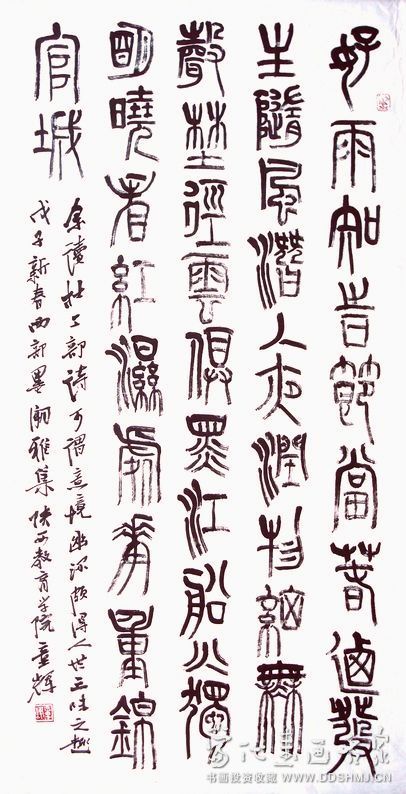 好雨知時節當春迺發
生隨風潛入夜潤物細無
聲埜徑雲俱黑江船火獨
明曉看紅濕處華重錦
官城
余讀杜工部詩可謂意境幽深頗得人世三昧之趣
戊子新春西部墨潮雅集陝西教育学院童輝
书画投资收藏 WWW.DDSHMJ.CN